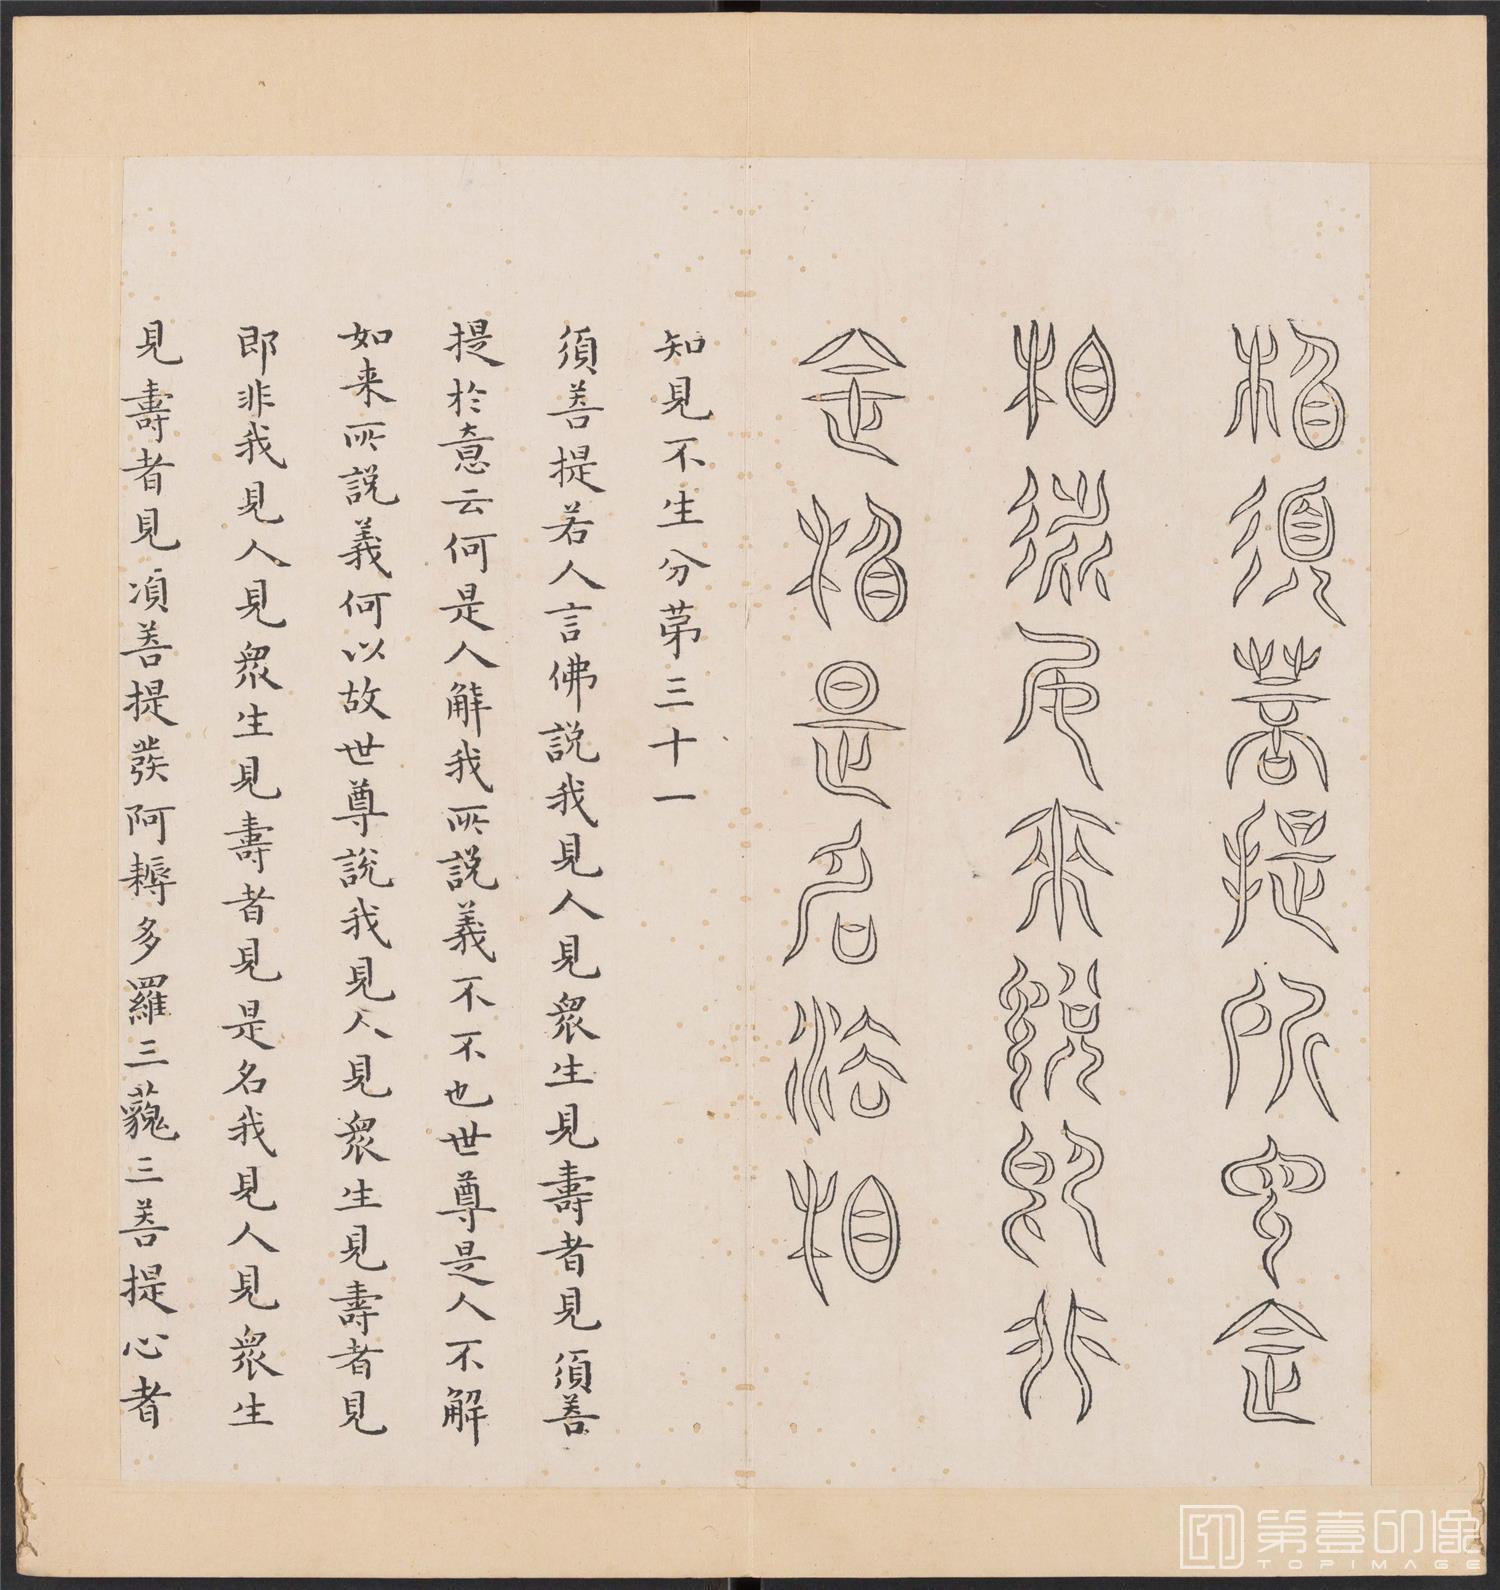 相須菩提所言法
相者如來說即非
法相是名法相
知見不生分苐三十一
須菩提若人言佛說我見人見衆生見壽者見須菩
提於意云何是人解我所說義不不也世尊是人不解
如来所說義何以故世尊說我見人見衆生見壽者見
即非我見人見衆生見壽者見是名我見人見衆生
見壽者見須菩提發阿耨多羅三藐三菩提心者
第壹印像
TOPIMAGE